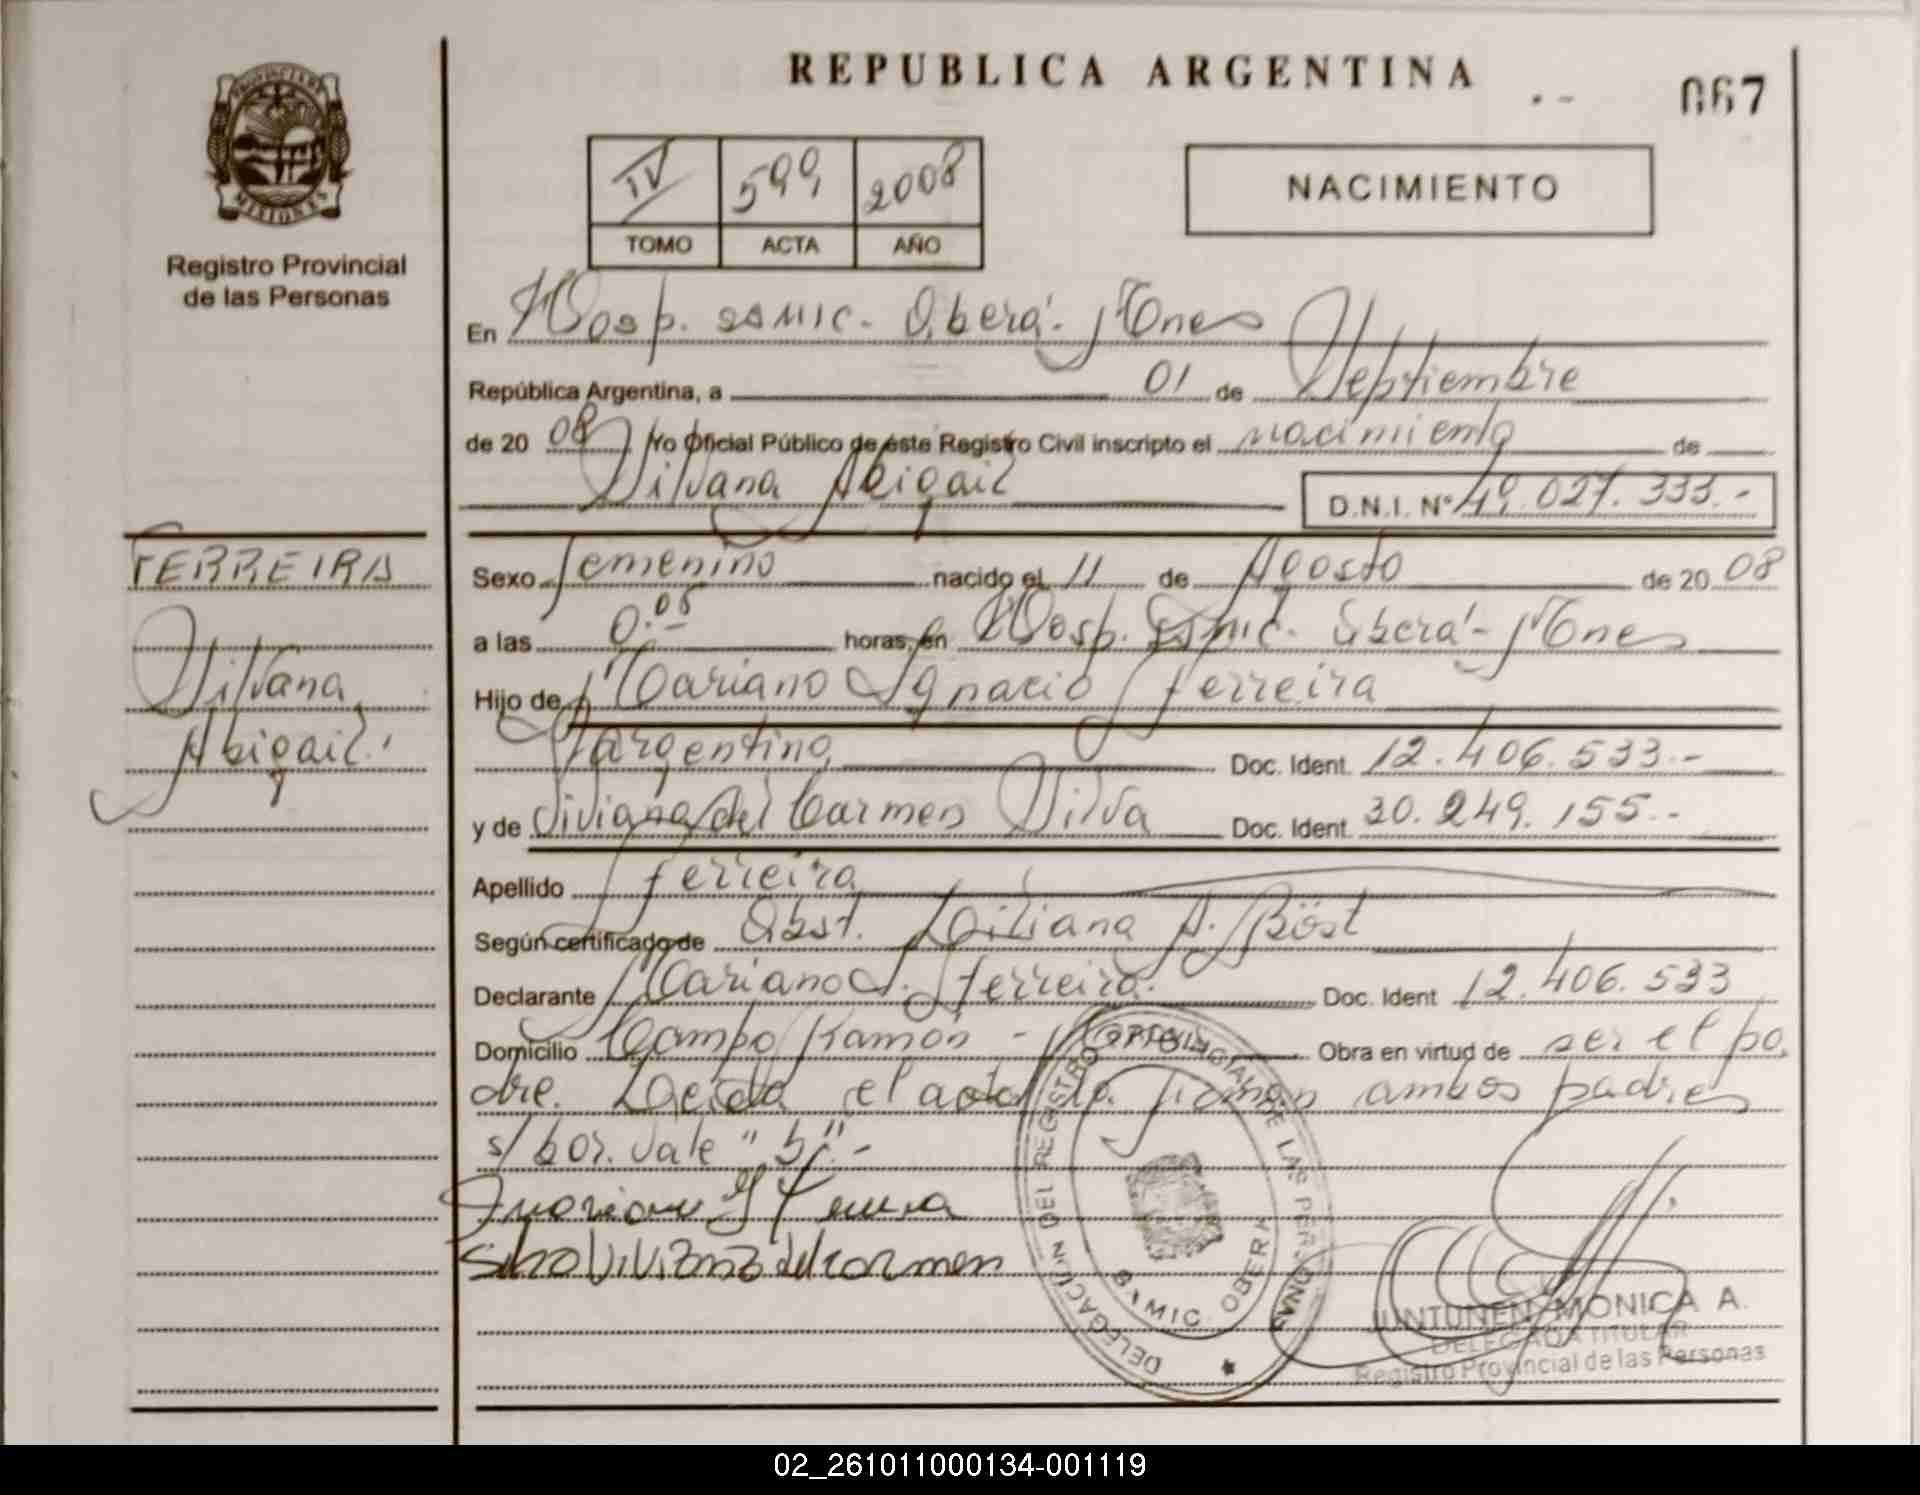 REPUBLICA ARGENTINA
067
PROVINCIA DE
MISIONES
Registro Provincial
de las Personas
IV 599 2008
TOMO ACTA AÑO
NACIMIENTO
En Hosp. SAMIC - Oberá - Mnes
República Argentina, a 01 de Septiembre
de 20 08 Yo Oficial Público de éste Registro Civil inscripto el nacimiento de
Silvana Abigail D.N.I. Nº 49.027.333.-
FERREIRA
Silvana
Abigail.
Sexo femenino nacido el 11 de Agosto de 20 08
a las 0.05 horas, en Hosp. Samic. Oberá - Mnes
Hijo de Mariano Ignacio Ferreira
Argentino Doc. Ident. 12.406.533.-
y de Viviana del Carmen Silva Doc. Ident. 30.249.155.-
Apellido Ferreira
Según certificado de Obst. Liliana A. Böst
Declarante Mariano I. Ferreira. Doc. Ident 12.406.533
Domicilio Campo Ramón - Obra en virtud de ser el pa
dre. Leída el acta la firman ambos padres
s/bor. Vale "b".-
Silva Viviana del carmen
DELEGACION DEL REGISTRO PROVINCIAL DE LAS PERSONAS
SAMIC OBERA
JUNTUNEN MONICA A.
DELEGADA TITULAR
Registro Provincial de las Personas
02_261011000134-001119